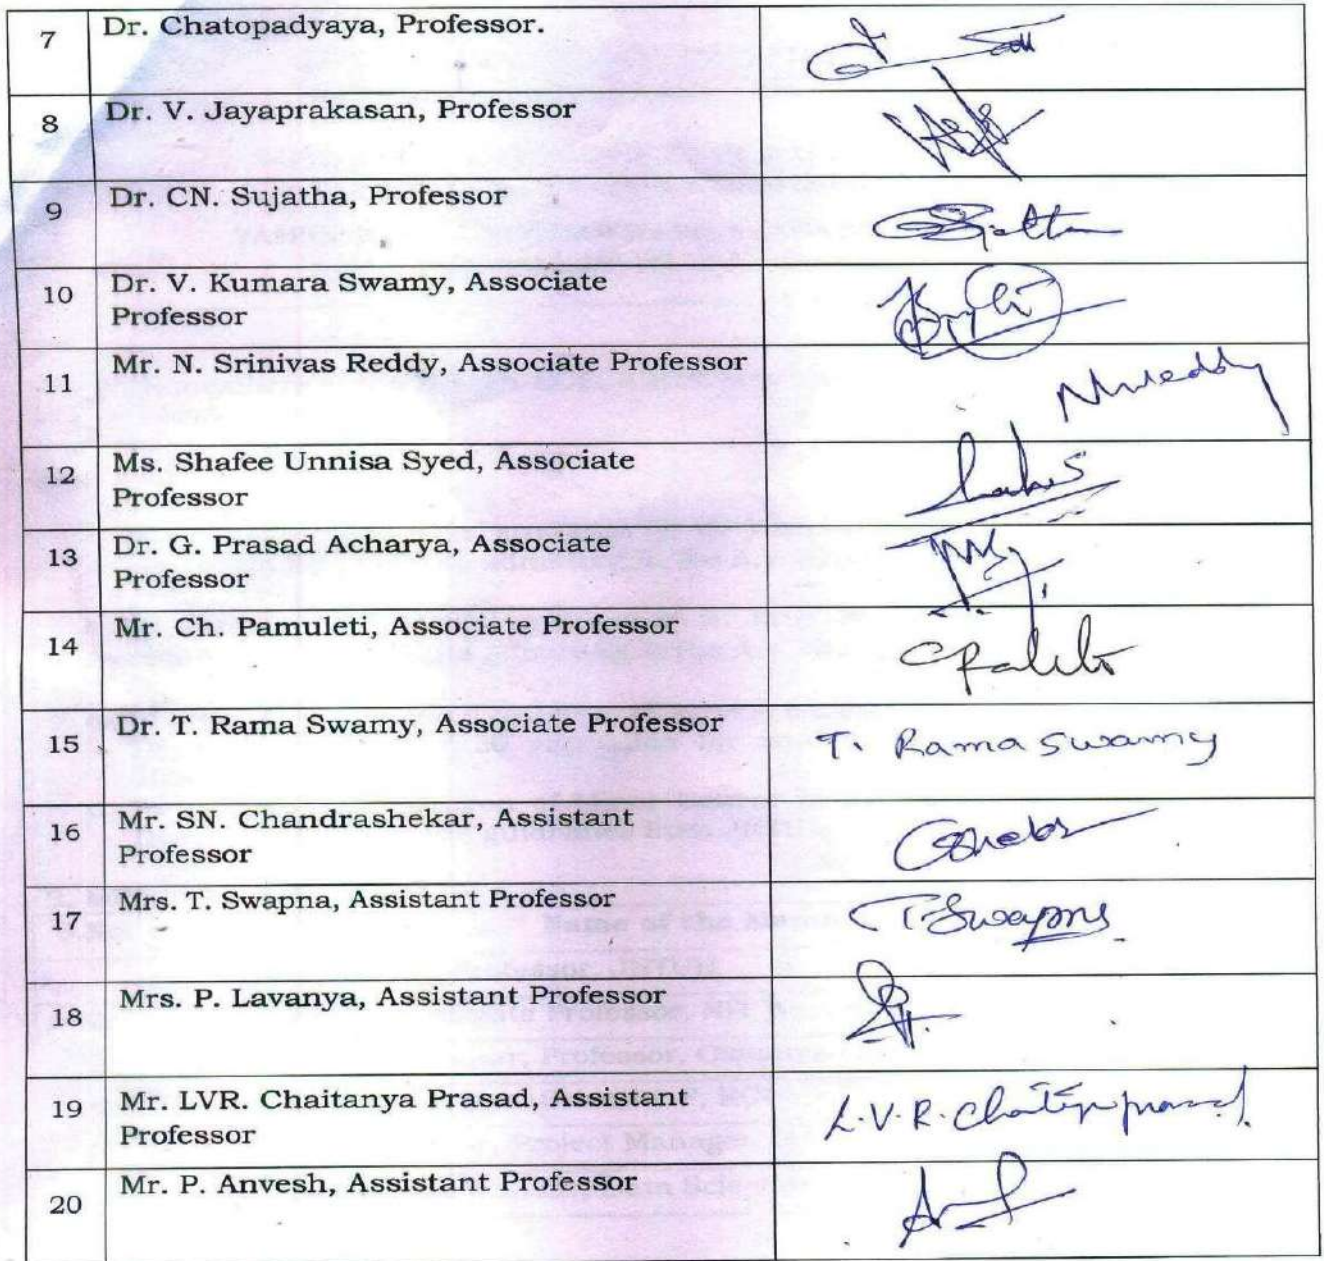 7 Dr. Chatopadyaya, Professor.
8 Dr. V. Jayaprakasan, Professor
9 Dr. CN. Sujatha, Professor
10 Dr. V. Kumara Swamy, Associate
Professor
11 Mr. N. Srinivas Reddy, Associate Professor
12 Ms. Shafee Unnisa Syed, Associate
Professor
13 Dr. G. Prasad Acharya, Associate
Professor
14 Mr. Ch. Pamuleti, Associate Professor
15 Dr. T. Rama Swamy, Associate Professor T. Rama Swamy
16 Mr. SN. Chandrashekar, Assistant
Professor
17 Mrs. T. Swapna, Assistant Professor T. Swapna
18 Mrs. P. Lavanya, Assistant Professor
19 Mr. LVR. Chaitanya Prasad, Assistant
Professor L.V.R.
20 Mr. P. Anvesh, Assistant Professor